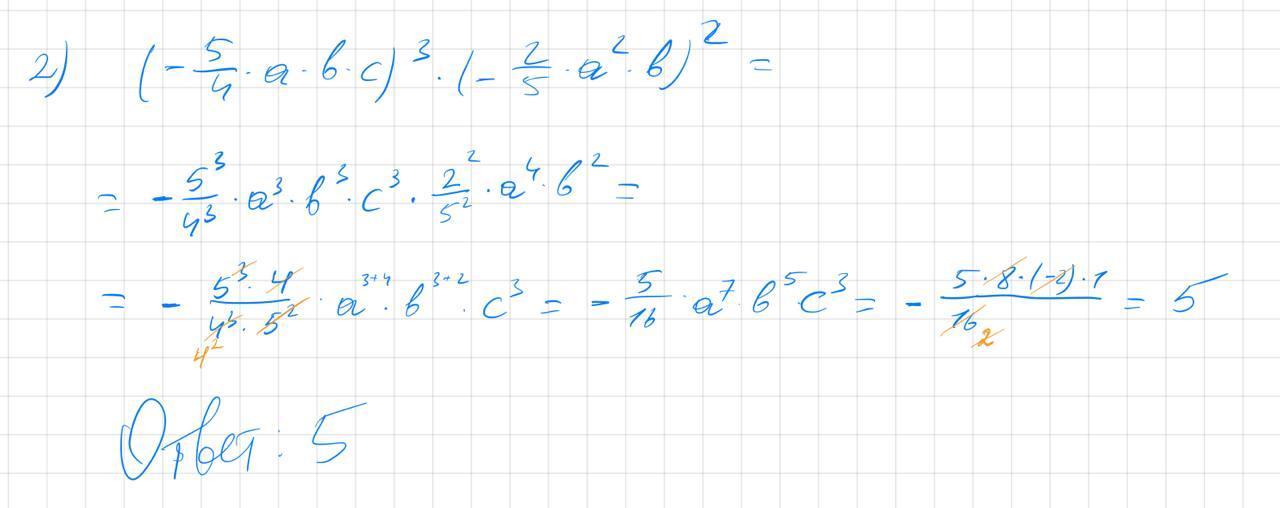 2) (-5/4 · a · b · c)³ · (-2/5 · a² · b)² =
= -5³/4³ · a³ · b³ · c³ · 2²/5² · a⁴ · b² =
= - 5³·4/4³·5² 4² · a³⁺⁴ · b³⁺² · c³ = -5/16 · a⁷ · b⁵ · c³ = - 5·8·(-2)·1/16 2 = 5
Ответ: 5